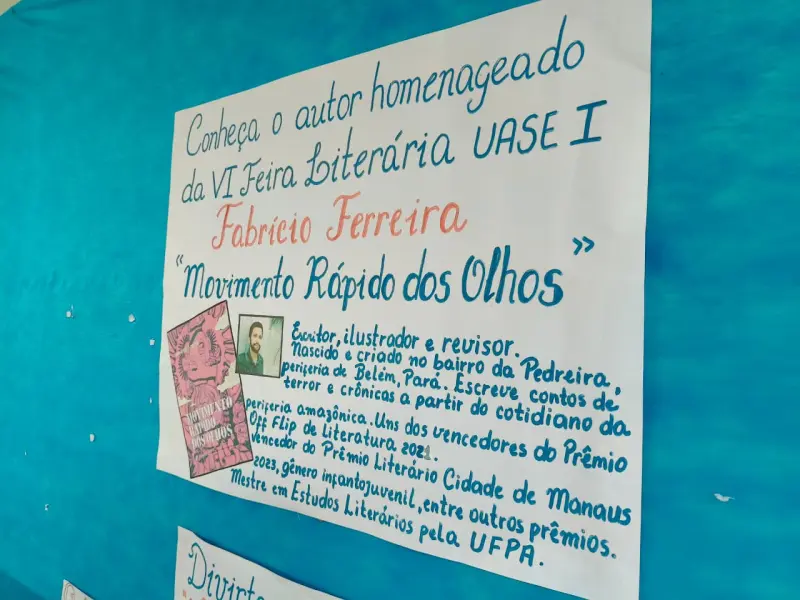 Conheça o autor homenageado
da VI Feira Literária UASE I
Fabrício Ferreira
"Movimento Rápido dos Olhos"
MOVIMENTO
RÁPIDO
DOS OLHOS
Escritor, ilustrador e revisor.
Nascido e criado no bairro da Pedreira,
periferia de Belém, Pará. Escreve contos de
terror e crônicas a partir do cotidiano da
periferia amazônica. Uns dos vencedores do Prêmio
Off Flip de Literatura 2021.
Vencedor do Prêmio Literário Cidade de Manaus
2023, gênero infantojuvenil, entre outros prêmios.
Mestre em Estudos Literários pela UFPA.
Divirt